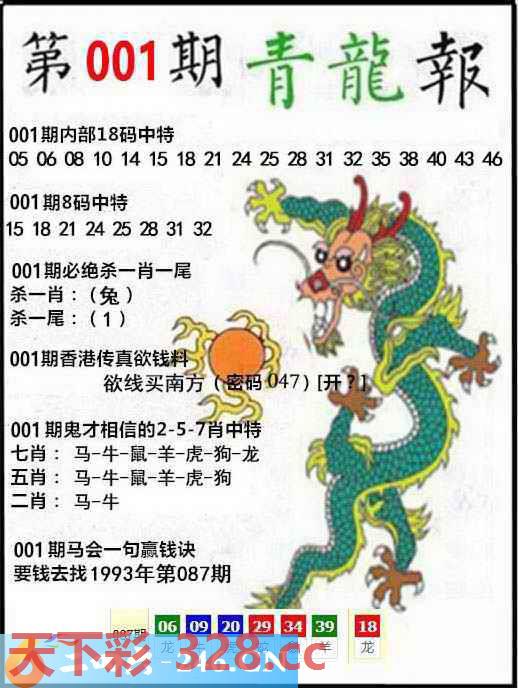 第001期青龍報
001期内部18码中特
05 06 08 10 14 15 18 21 24 25 28 31 32 35 38 40 43 46
001期8码中特
15 18 21 24 25 28 31 32
001期必绝杀一肖一尾
杀一肖：（兔）
杀一尾：（1）
001期香港传真欲钱料
欲线买南方（密码047）[开？]
001期鬼才相信的2-5-7肖中特
七肖：马-牛-鼠-羊-虎-狗-龙
五肖：马-牛-鼠-羊-虎-狗
二肖：马-牛
001期马会一句赢钱诀
要钱去找1993年第087期
06 09 20 29 34 39 18
龙 羊 龙
天下彩-328.cc